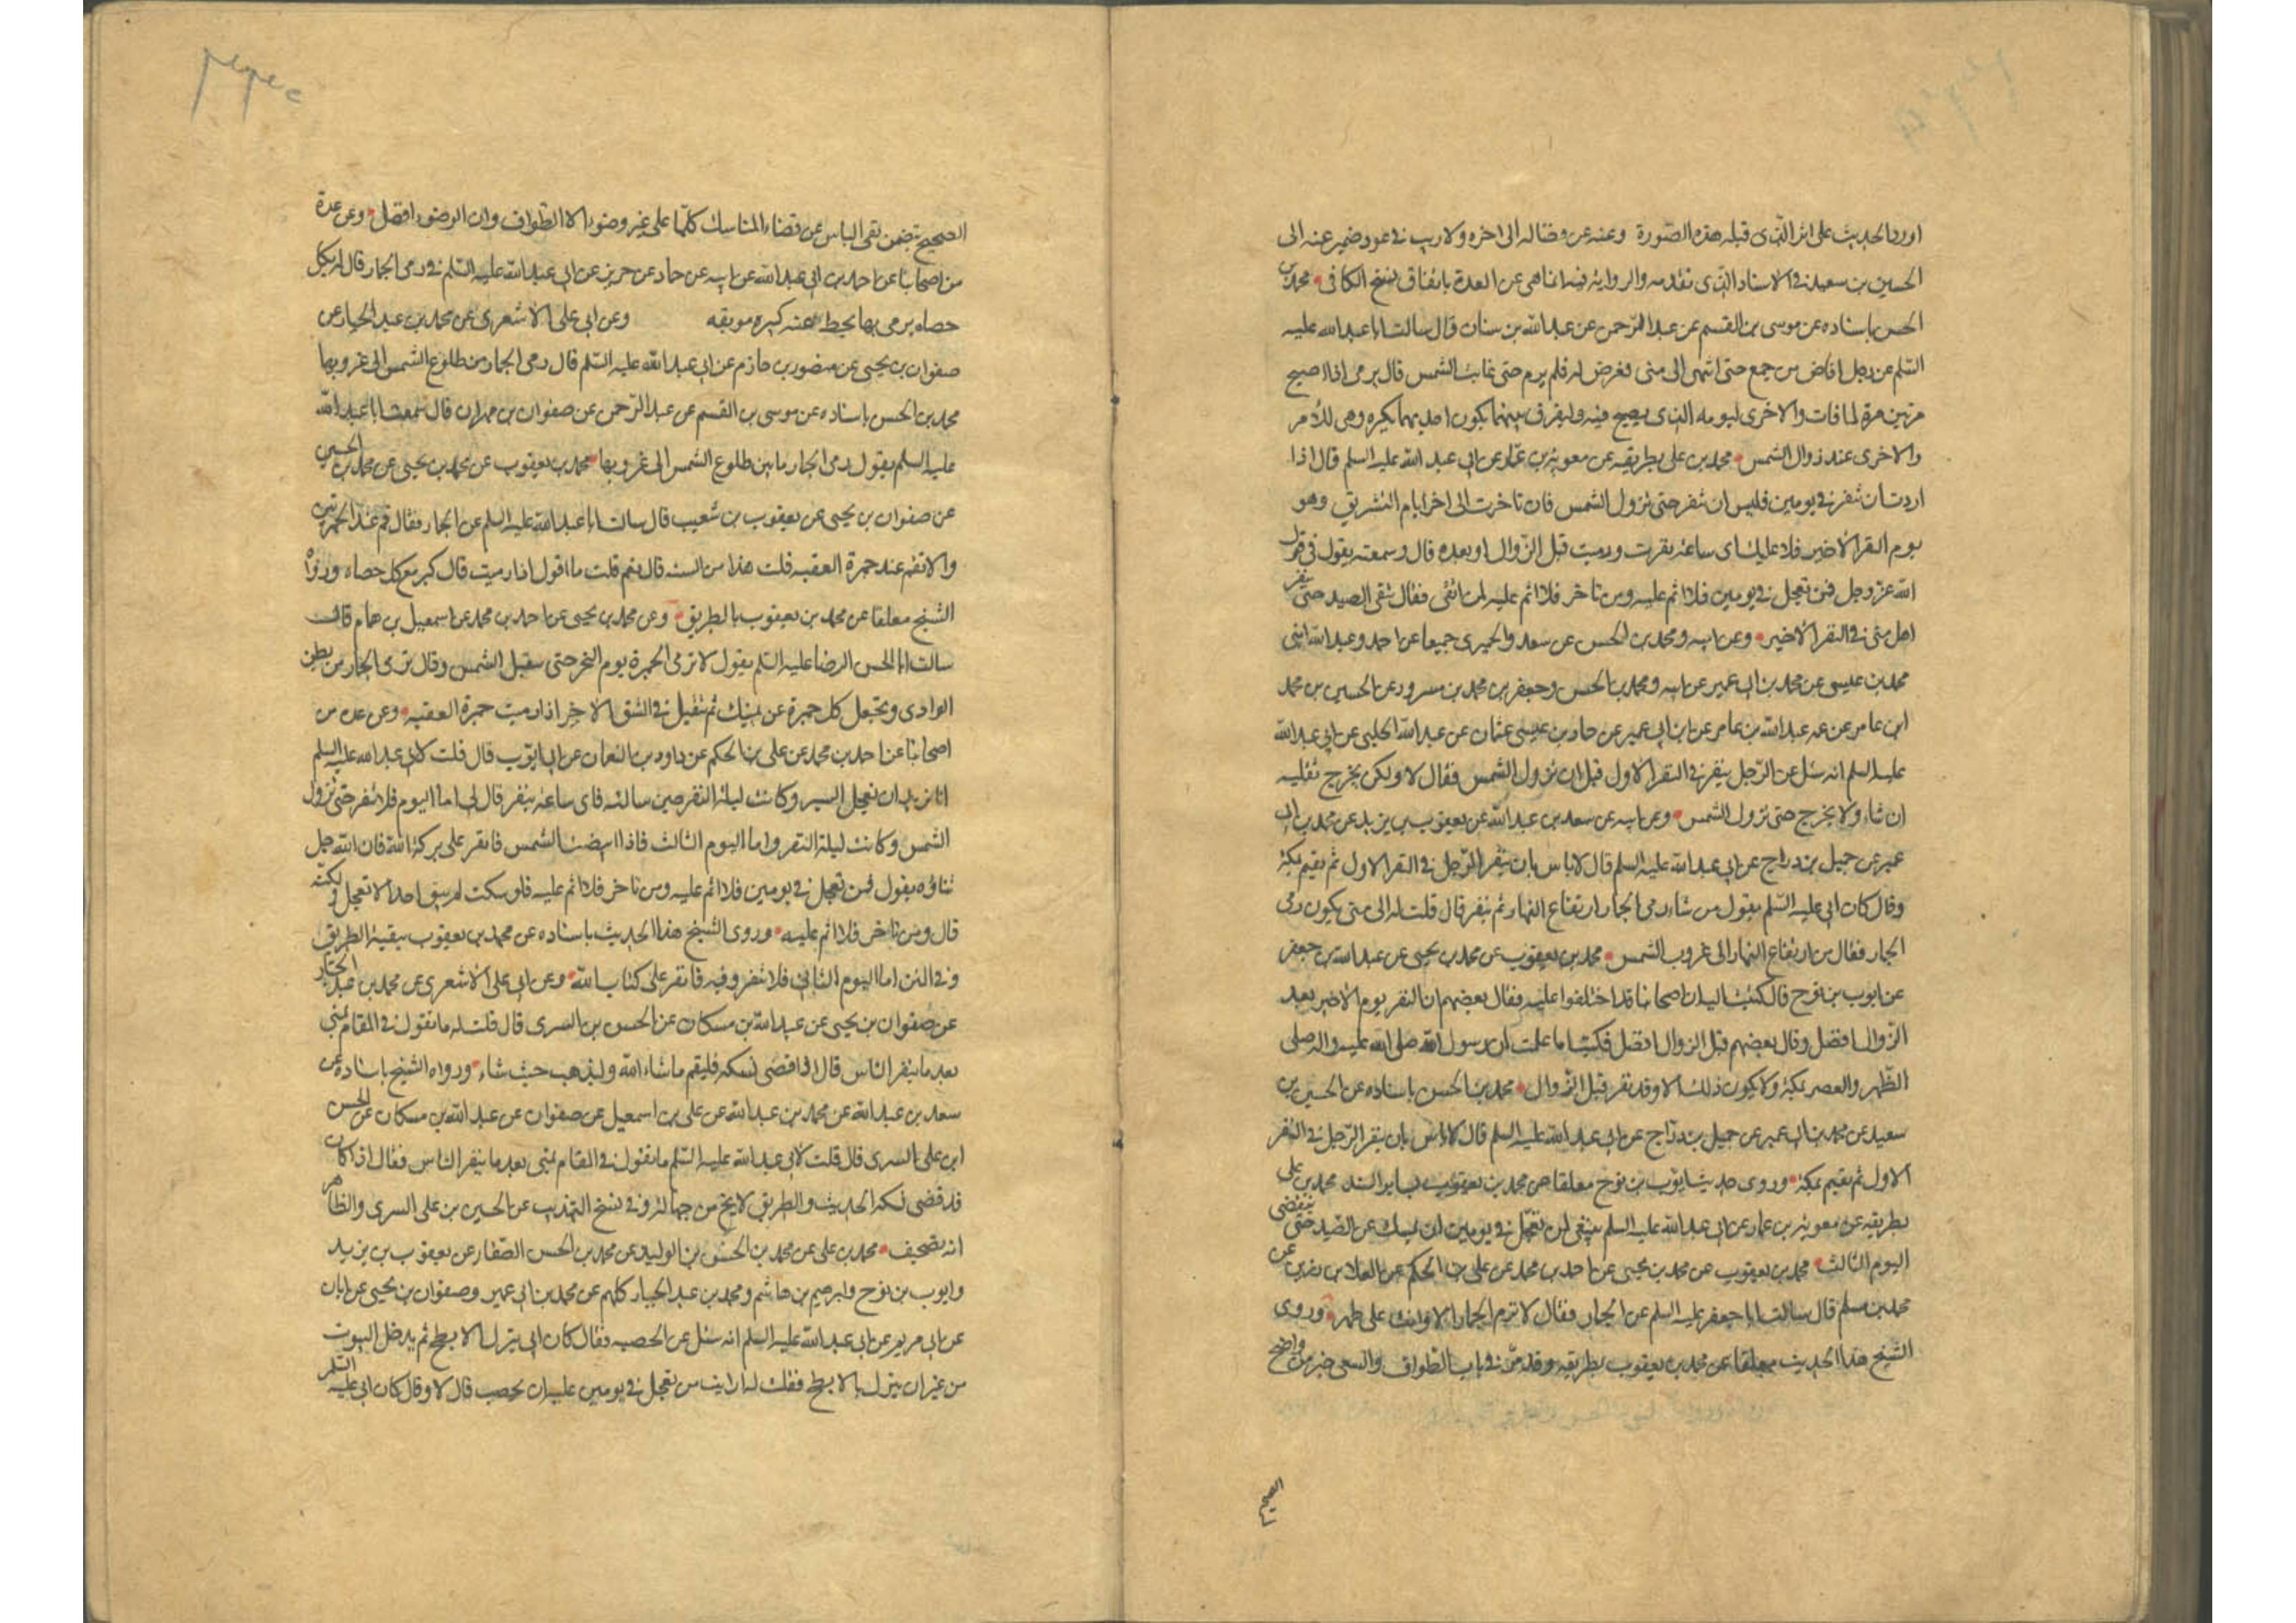 اورد الحديث على اثر الذى قبله هذه الصورة وعنه عن فضاله الى اخره ولا ريب فى عود ضمير عنه الى
الحسين بن سعيد فى الاسناد الذى تقدمه والرواية فيه انما هى عن العدة باتفاق نسخ الكافى محمد بن
الحسن باسناده عن موسى بن القسم عن عبد الرحمن عن عبد الله بن سنان قال سالت ابا عبد الله عليه
السلم عن رجل افاض من جمع حتى انتهى الى منى فعرض له فلم يرم حتى غابت الشمس قال يرمى اذا اصبح
مرتين مرة لما فات والاخرى ليومه الذى يصبح فيه وليفرق بينهما يكون احديهما بكره وهى للامر
والاخرى عند زوال الشمس محمد بن على بطريقه عن معوية بن عمار عن ابى عبد الله عليه السلم قال اذا
اردت ان تنفر فى يومين فليس ان تنفر حتى تزول الشمس فان تاخرت الى اخر ايام التشريق وهو
يوم النفر الاخير فلا عليك اى ساعة نفرت ورميت قبل الزوال او بعده قال وسمعته يقول فى قول
الله عز وجل فمن تعجل فى يومين فلا اثم عليه ومن تاخر فلا اثم عليه لمن اتقى فقال يتقى الصيد حتى ينفر
اهل منى فى النفر الاخير وعن ابيه ومحمد بن الحسن عن سعد والحميرى جميعا عن احمد وعبد الله ابنى
محمد بن عيسى عن محمد بن ابى عمير عن ابيه ومحمد بن الحسن وجعفر بن محمد بن مسرور عن الحسين بن محمد
ابن عامر عن عمه عبد الله بن عامر عن ابن ابى عمير عن حماد بن عيسى عثمان عن عبد الله الحلبى عن ابى عبد الله
عليه السلم انه سئل عن الرجل ينفر فى النفر الاول قبل ان تزول الشمس فقال لا ولكن يخرج ثقليه
ان شاء ولا يخرج حتى تزول الشمس وعن ابيه عن سعد بن عبد الله عن يعقوب بن يزيد عن محمد بن ابى
عمير عن جميل بن دراج عن ابى عبد الله عليه السلم قال لا باس بان ينفر الرجل فى النفر الاول ثم يقيم بمكة
وقال كان ابى عليه السلم يقول من شاء رمى الجمار ارتفاع النهار ثم ينفر قال قلت له الى متى يكون رمى
الجمار فقال من ارتفاع النهار الى غروب الشمس محمد بن يعقوب عن محمد بن يحيى عن عبد الله بن جعفر
عن ايوب بن نوح قال كتبت اليه ان اصحابنا قد اختلفوا علينا فقال بعضهم ان النفر يوم الاخير بعد
الزوال افضل وقال بعضهم قبل الزوال افضل فكتب اما علمت ان رسول الله صلى الله عليه واله صلى
الظهر والعصر بمكة ولا يكون ذلك الا وقد نفر قبل الزوال محمد بن الحسن باسناده عن الحسين بن
سعيد عن محمد بن ابى عمير عن جميل بن دراج عن ابى عبد الله عليه السلم قال لا باس بان ينفر الرجل فى النفر
الاول ثم يقيم بمكة وروى حديث ايوب بن نوح معلقا عن محمد بن يعقوب بساير السند محمد بن على
بطريقه عن معوية بن عمار عن ابى عبد الله عليه السلم ينبغى لمن تعجل فى يومين ان يمسك عن الصيد حتى ينقضى
اليوم الثالث محمد بن يعقوب عن محمد بن يحيى عن احمد بن محمد عن على بن الحكم عن العلا بن رزين عن
محمد بن مسلم قال سالت ابا جعفر عليه السلم عن الجمار فقال لا ترم الجمار الا وانت على طهر وروى
الشيخ هذا الحديث معلقا عن محمد بن يعقوب بطريقه وقد مر فى باب الطواف والسعى خبر من واضح
الصحيح
الصحيح يتضمن نفى الباس عن قضاء المناسك كلها على غير وضوء الا الطواف وان الوضوء افضل وعن عدة
من اصحابنا عن احمد بن ابى عبد الله عن ابيه عن حماد عن حريز عن ابى عبد الله عليه السلم فى رمى الجمار قال له بكل
حصاه يرمى بها يحط عنه كبيره موبقه وعن ابى على الاشعرى عن محمد بن عبد الجبار عن
صفوان بن يحيى عن منصور بن حازم عن ابى عبد الله عليه السلم قال رمى الجمار من طلوع الشمس الى غروبها
محمد بن الحسن باسناده عن موسى بن القسم عن عبد الرحمن عن صفوان بن مهران قال سمعت ابا عبد الله
عليه السلم يقول رمى الجمار ما بين طلوع الشمس الى غروبها محمد بن يعقوب عن محمد بن يحيى عن محمد بن الحسين
عن صفوان بن يحيى عن يعقوب بن شعيب قال سالت ابا عبد الله عليه السلم عن الجمار فقال قم عند الجمرتين
ولا تقم عند جمرة العقبه قلت هذا من السنه قال نعم قلت ما اقول اذا رميت قال كبر مع كل حصاه ورواه
الشيخ معلقا عن محمد بن يعقوب بالطريق وعن محمد بن يحيى عن احمد بن محمد عن اسمعيل بن همام قال
سالت ابا الحسن الرضا عليه السلم يقول لا ترمى الجمرة يوم النحر حتى تطلع الشمس وقال ترمى الجمار من بطن
الوادى وتجعل كل جمرة عن يمينك ثم تنفتل فى الشق الاخر اذا رميت جمرة العقبه وعن عدة من
اصحابنا عن احمد بن محمد عن على بن الحكم عن داود بن النعمان عن ابى ايوب قال قلت لابى عبد الله عليه السلم
انا نريد ان نتعجل السير وكانت ليلة النفر حين سالته فاى ساعة ننفر قال لى اما اليوم فلا تنفر حتى تزول
الشمس وكانت ليلة النفر واما اليوم الثالث فاذا ابيضت الشمس فانفر على بركة الله فان الله جل
ثناؤه يقول فمن تعجل فى يومين فلا اثم عليه ومن تاخر فلا اثم عليه فلو سكت لم يبق احد الا تعجل ولكنه
قال ومن تاخر فلا اثم عليه وروى الشيخ هذا الحديث باسناده عن محمد بن يعقوب ببقية الطريق
وفى المتن اما اليوم الثانى فلا تنفر وفيه فانفر على كتاب الله وعن ابى على الاشعرى عن محمد بن عبد الجبار
عن صفوان بن يحيى عن عبد الله بن مسكان عن الحسن بن السرى قال قلت له ما تقول فى المقام بمنى
بعد ما ينفر الناس قال اذا قضى نسكه فليقم ما شاء الله وليذهب حيث شاء ورواه الشيخ باسناده عن
سعد بن عبد الله عن محمد بن عبد الله عن على بن اسمعيل عن صفوان عن عبد الله بن مسكان عن الحسن
ابن على السرى قال قلت لابى عبد الله عليه السلم ما تقول فى المقام بمنى بعد ما ينفر الناس فقال اذا كان
قد قضى نسكه الحديث والطريق لا يخ من جهالة وفى نسخ التهذيب عن الحسين بن على السرى والظاهر
انه تصحيف محمد بن على عن محمد بن الحسن بن الوليد عن محمد بن الحسن الصفار عن يعقوب بن يزيد
وايوب بن نوح وابرهيم بن هاشم ومحمد بن عبد الجبار كلهم عن محمد بن ابى عمير وصفوان بن يحيى عن ابان
عن ابى مريم عن ابى عبد الله عليه السلم انه سئل عن الحصبه فقال كان ابى ينزل الابطح ثم يدخل البيوت
من غير ان ينزل بالابطح فقلت له ارايت من تعجل فى يومين عليه ان يحصب قال لا وقال كان ابى عليه السلم